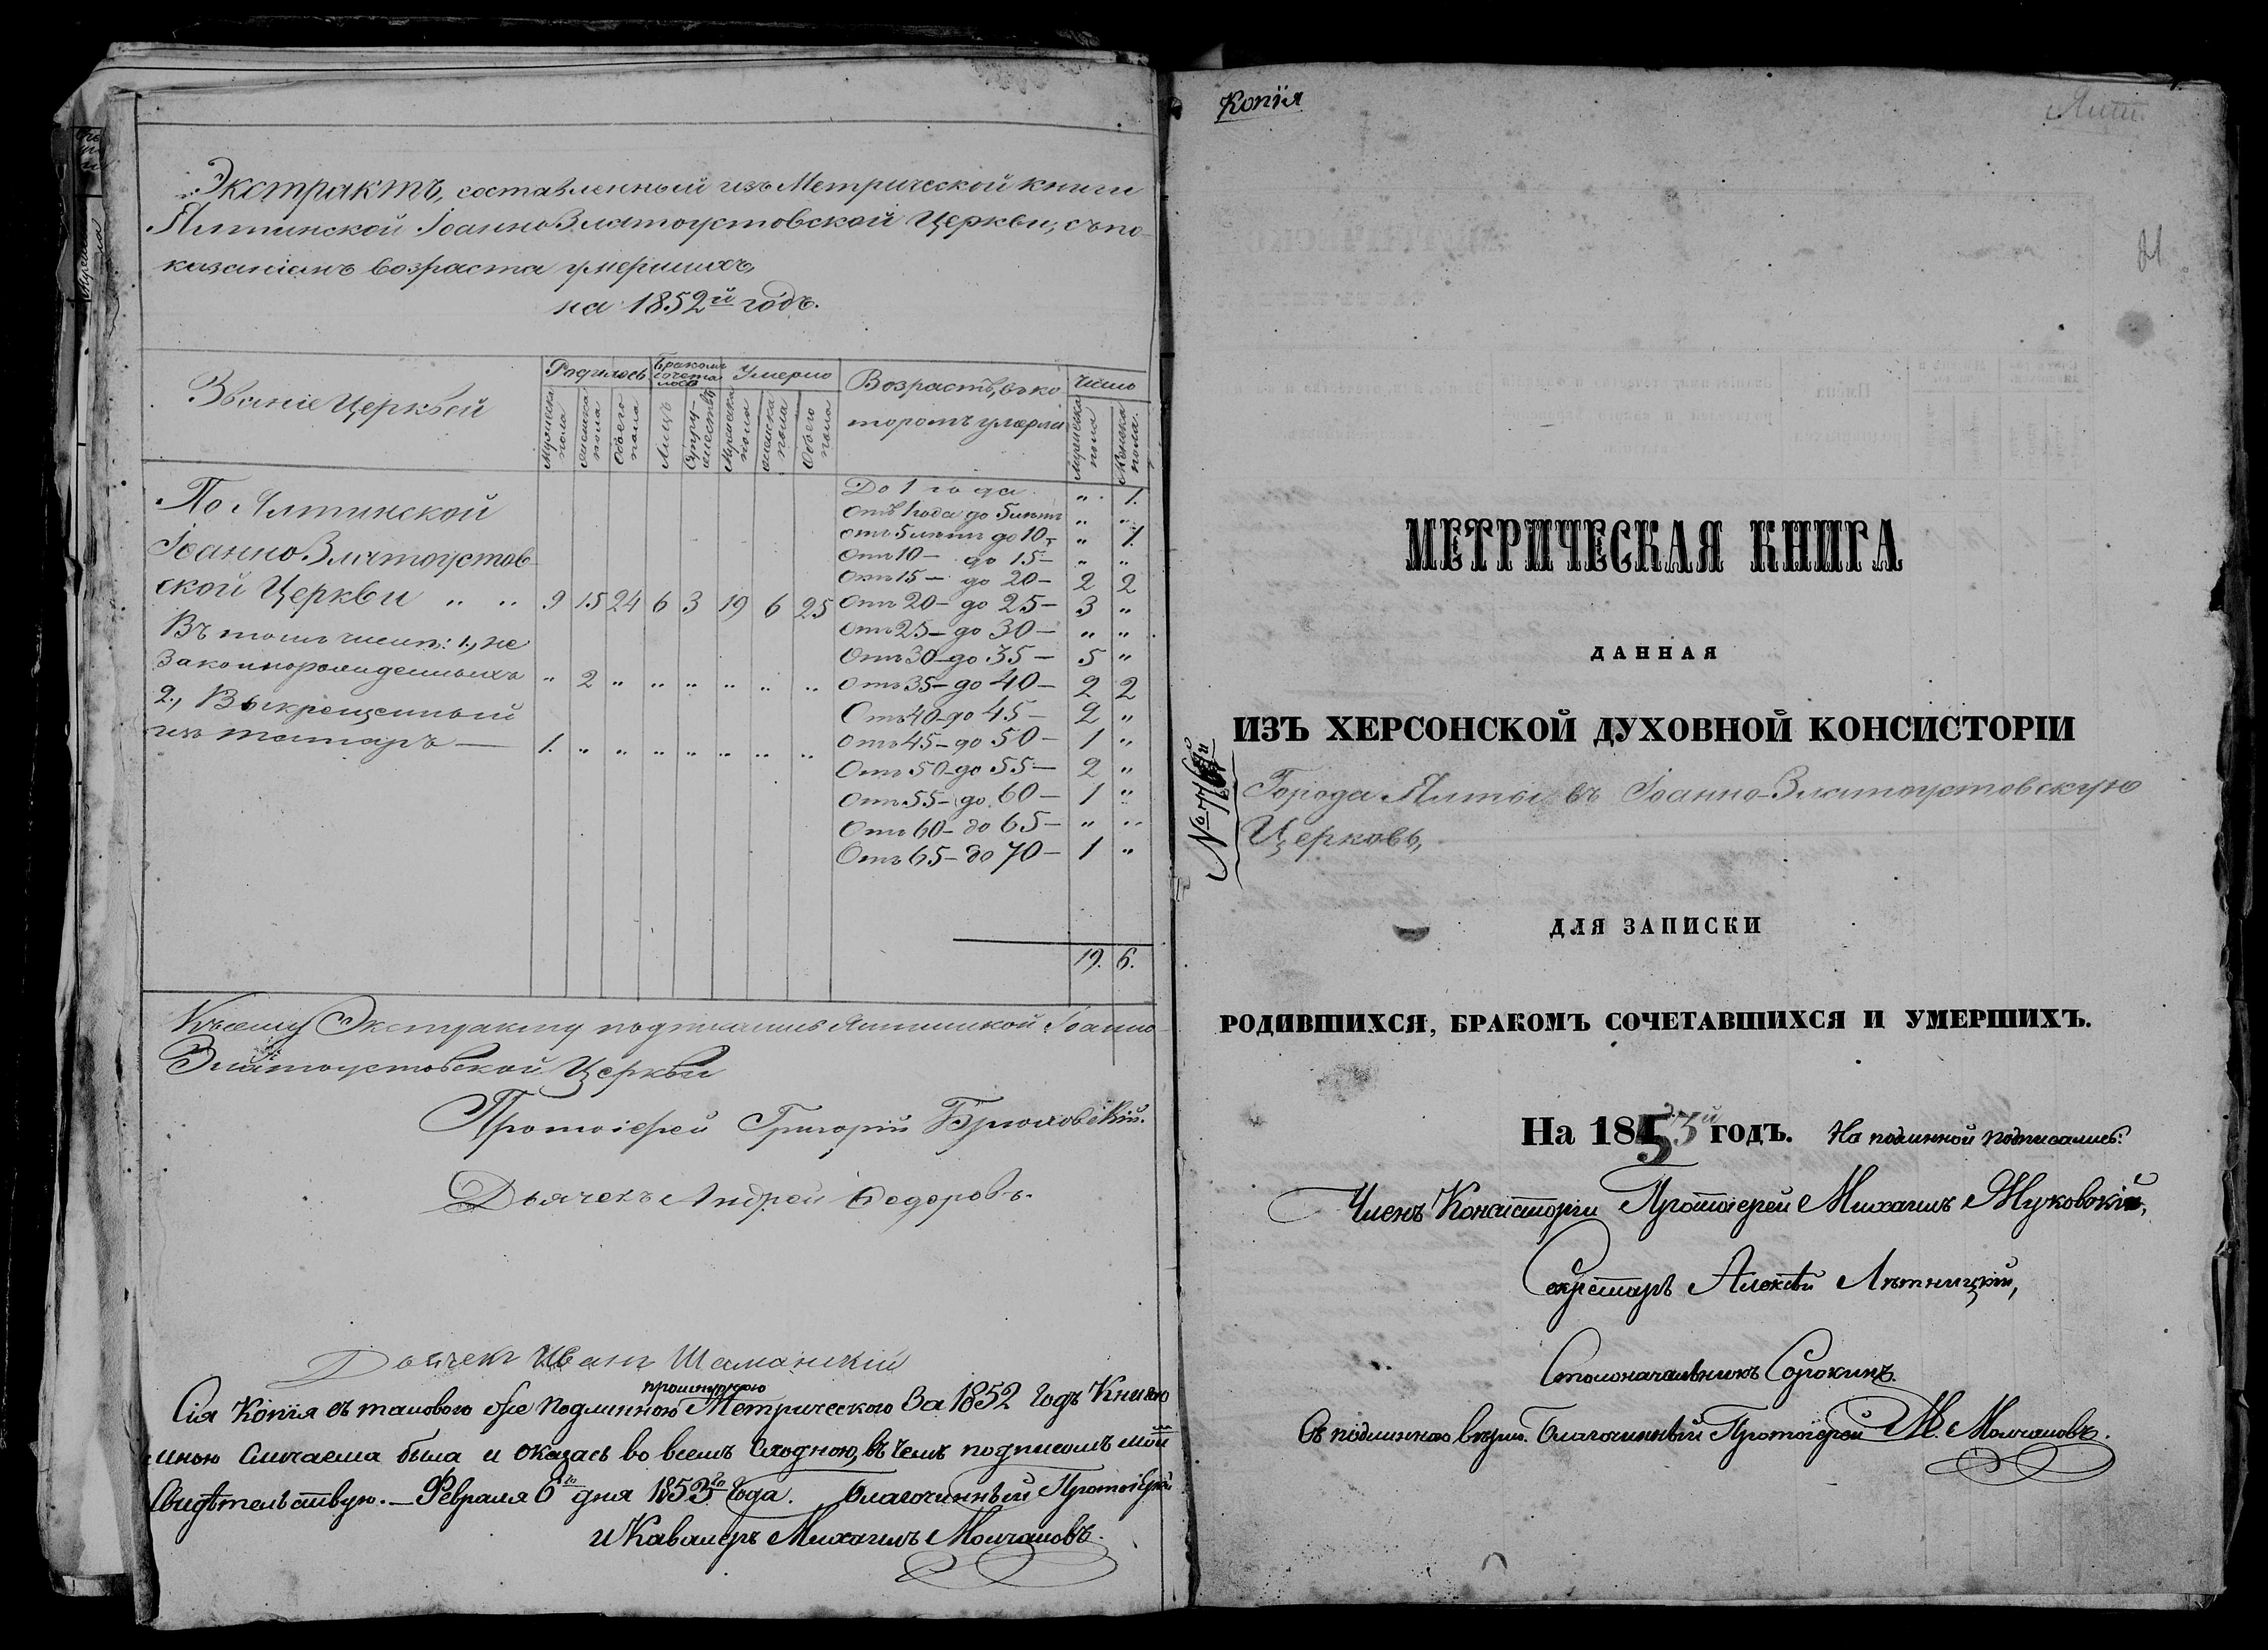 Экстрактъ, составленный изъ Метрической книги
Ялтинской Іоанно Златоустовской Церкви, съ по-
казаніемъ возраста умершихъ,
на 1852й годъ.
Званіе Церквей
Родилось
Бракомъ сочета лось
Умерло
Возрастъ, въ ко
торомъ умерли
Число
Мужеска пола
женска пола
Обоего пола
Лицъ
Супру-жествъ
Мужеска пола
женска пола
Обоего пола
Мужеска пола
Женска пола.
До 1 года " 1.
По Ялтинской
Отъ 1 года до 5 лѣтъ " "
отъ 5 лѣтъ до 10- " 1.
Іоанно Златоустов-
Отъ 10 - до 15- " "
Отъ 15 - до 20- 2 2
ской Церкви " " 9 15 24 6 3 19 6 25 Отъ 20- до 25- 3 "
Въ томъ числѣ: 1., не
Отъ 25- до 30- " "
законнорожденныхъ " 2 " " " " " "
Отъ 30- до 35- 5 "
Отъ 35- до 40- 2 2
2., Выкрещенный
Отъ 40- до 45- 2 "
изъ татаръ — 1. " " " " " " "
Отъ 45- до 50- 1 "
Отъ 50- до 55- 2 "
Отъ 55- до 60- 1 "
Отъ 60- до 65- " "
Отъ 65- до 70- 1 "
19. 6.
Къ сему Экстракту подписались Ялтинской Іоанно-
Златоустовской Церкви
Протоіерей Григорій
Дьячекъ Андрей Федоровъ.
Дьячекъ Иванъ Шаманскій
прошнурою
Сія Копія съ таковою же подлинною Метрическою За 1852 Годъ Книгою
мною Сличаема была и оказась во всемъ Сходною, въ чемъ подписомъ моимъ
Свидѣтельствую. — Февраля 6го дня 1853го Года. Благочинный Протоіерей
и Кавалеръ Михаилъ Молчановъ.
Копія
Ялт.
21
МЕТРИЧЕСКАЯ КНИГА
ДАННАЯ
ИЗЪ ХЕРСОНСКОЙ ДУХОВНОЙ КОНСИСТОРІИ
Города Ялты въ Іоанно-Златоустовскую
Церковь,
ДЛЯ ЗАПИСКИ
РОДИВШИХСЯ, БРАКОМЪ СОЧЕТАВШИХСЯ И УМЕРШИХЪ.
На 1853й годъ. На подлинной подписались:
Членъ Консисторіи Протоіерей Михаилъ Жуковскій,
Секретарь Алексѣй Лѣтницкій,
Столоначальникъ Сорокинъ.
Съ подлинною вѣрно. Благочинный Протоіерей М. Молчановъ.